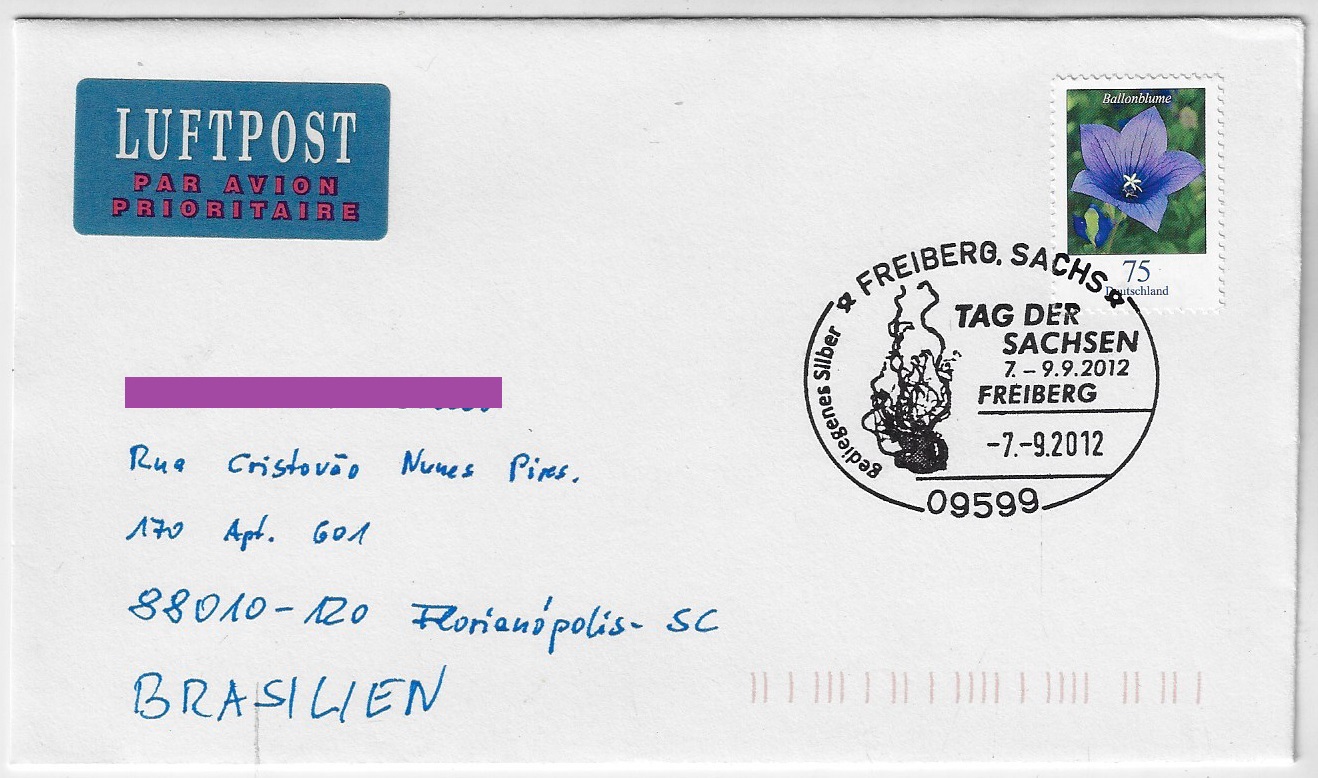 LUFTPOST
PAR AVION
PRIORITAIRE
Ballonblume
75
Deutschland
FREIBERG, SACHS
gediegenes Silber
TAG DER
SACHSEN
7. – 9.9.2012
FREIBERG
-7.-9.2012
09599
Rua Cristovão Nunes Pires.
170 Apt. 601
88010-120 Florianópolis - SC
BRASILIEN